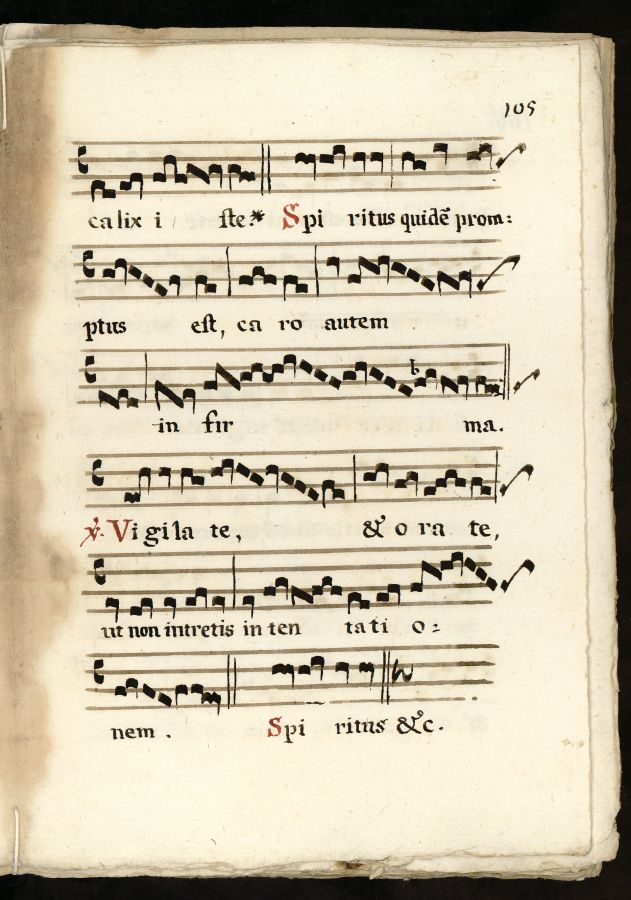 105
calix i ste.* Spi ritus quidē prom:
ptus est, ca ro autem
in fir ma.
℣. Vigila te, & o ra te,
ut non intretis in ten tati o:
nem. Spi ritus &c.